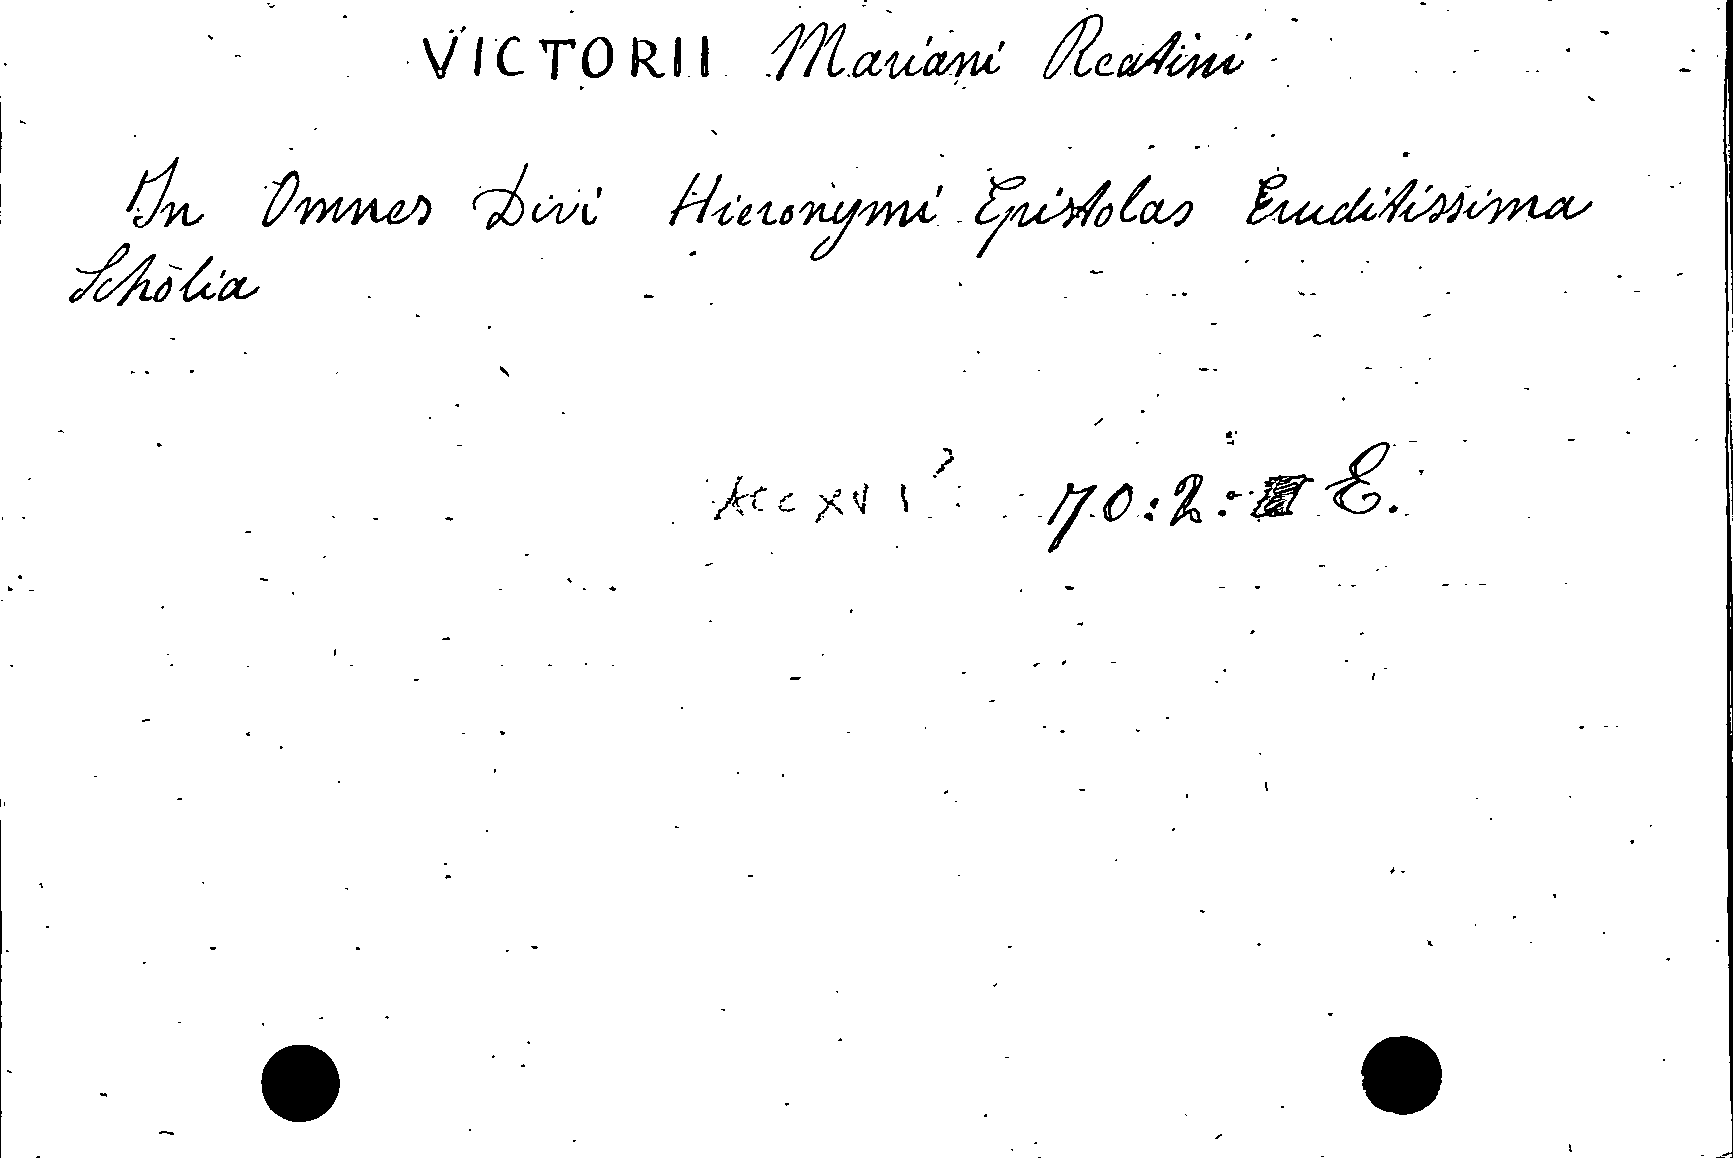 VICTORII Mariani Reatini
In Omnes Divi Hieronymi Epistolas Eruditissima
Scholia
XVI? 70:2: E.